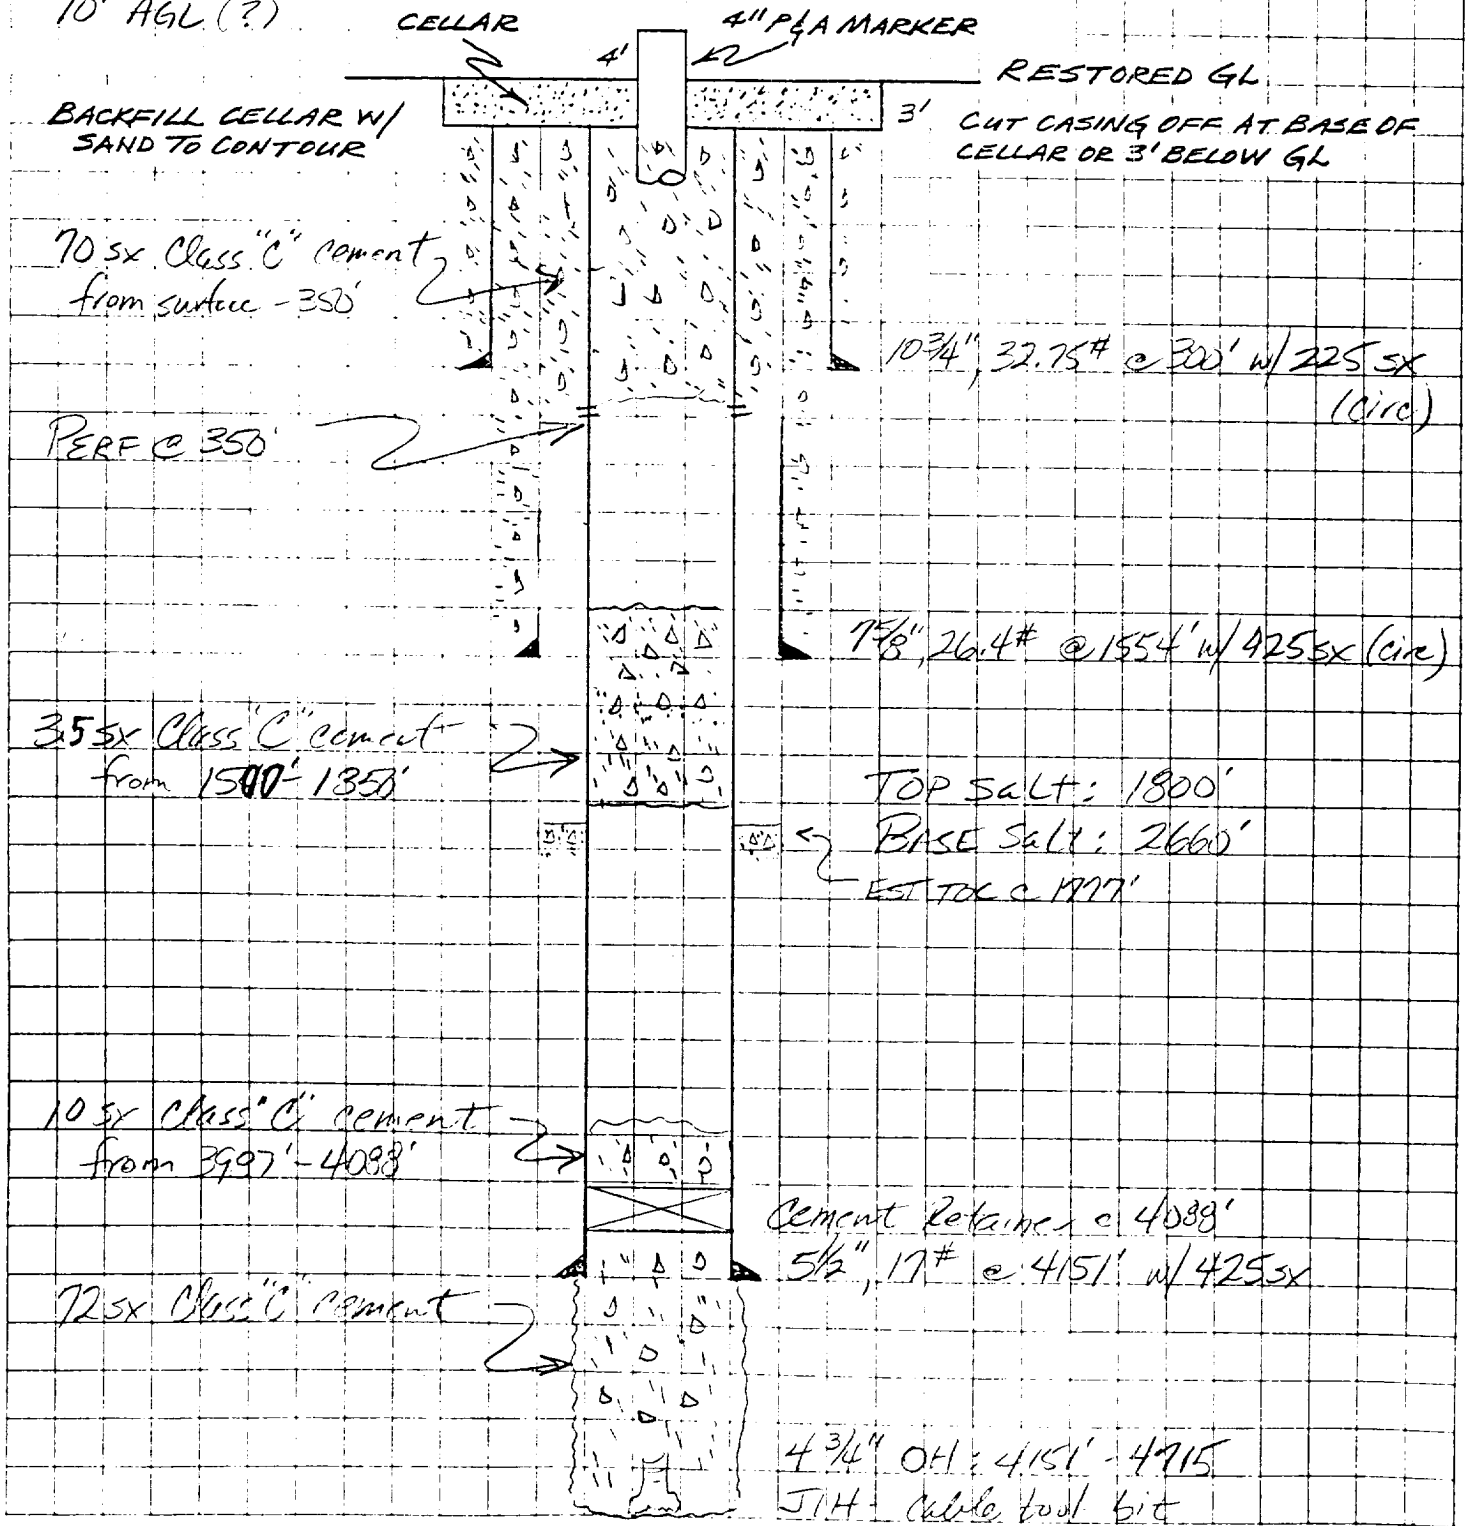 10' AGL (?)
CELLAR
4'
4" P&A MARKER
RESTORED GL
BACKFILL CELLAR W/
SAND TO CONTOUR
3'
CUT CASING OFF AT BASE OF
CELLAR OR 3' BELOW GL
70 sx Class "C" cement
from surface - 350'
10 3/4", 32.75# @ 300' w/ 225 sx
(circ)
PERF @ 350'
7 5/8", 26.4# @ 1554' w/ 425 sx (circ)
35 sx Class "C" cement
from - 1350'
TOP Salt: 1800'
BASE Salt: 2660'
EST TOC @ 1777'
10 sx Class "C" cement
from 3997' - 4088'
Cement Retainer @ 4088'
5 1/2", 17# @ 4151' w/ 425 sx
72 sx Class "C" cement
4 3/4" OH: 4151' - 4715
JIH - Cable tool bit